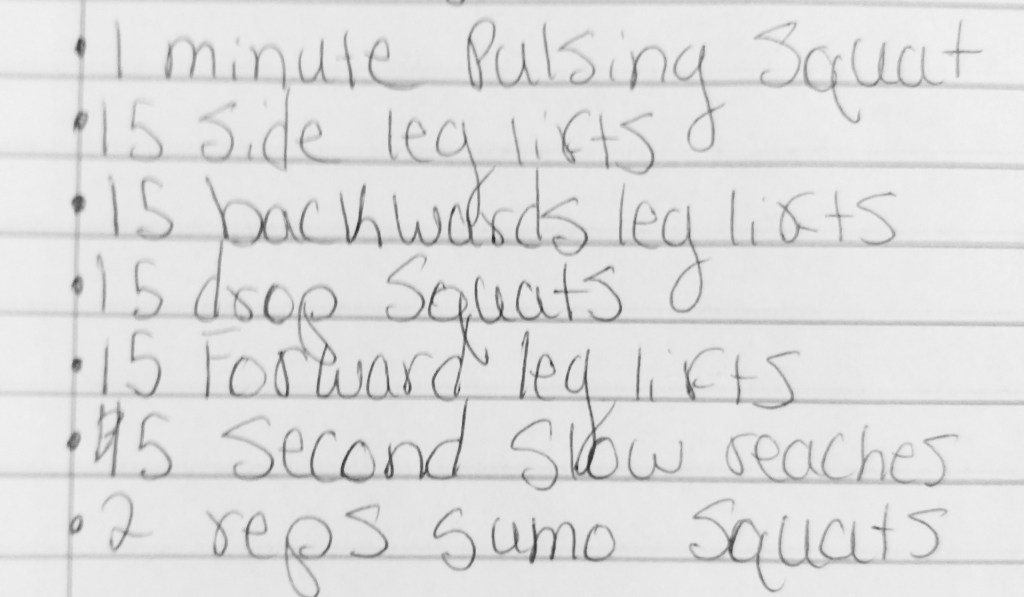 • 1 minute Pulsing Squat
• 15 Side leg lifts
• 15 backwards leg lifts
• 15 drop Squats
• 15 Forward leg lifts
• 45 Second Slow reaches
• 2 reps Sumo Squats